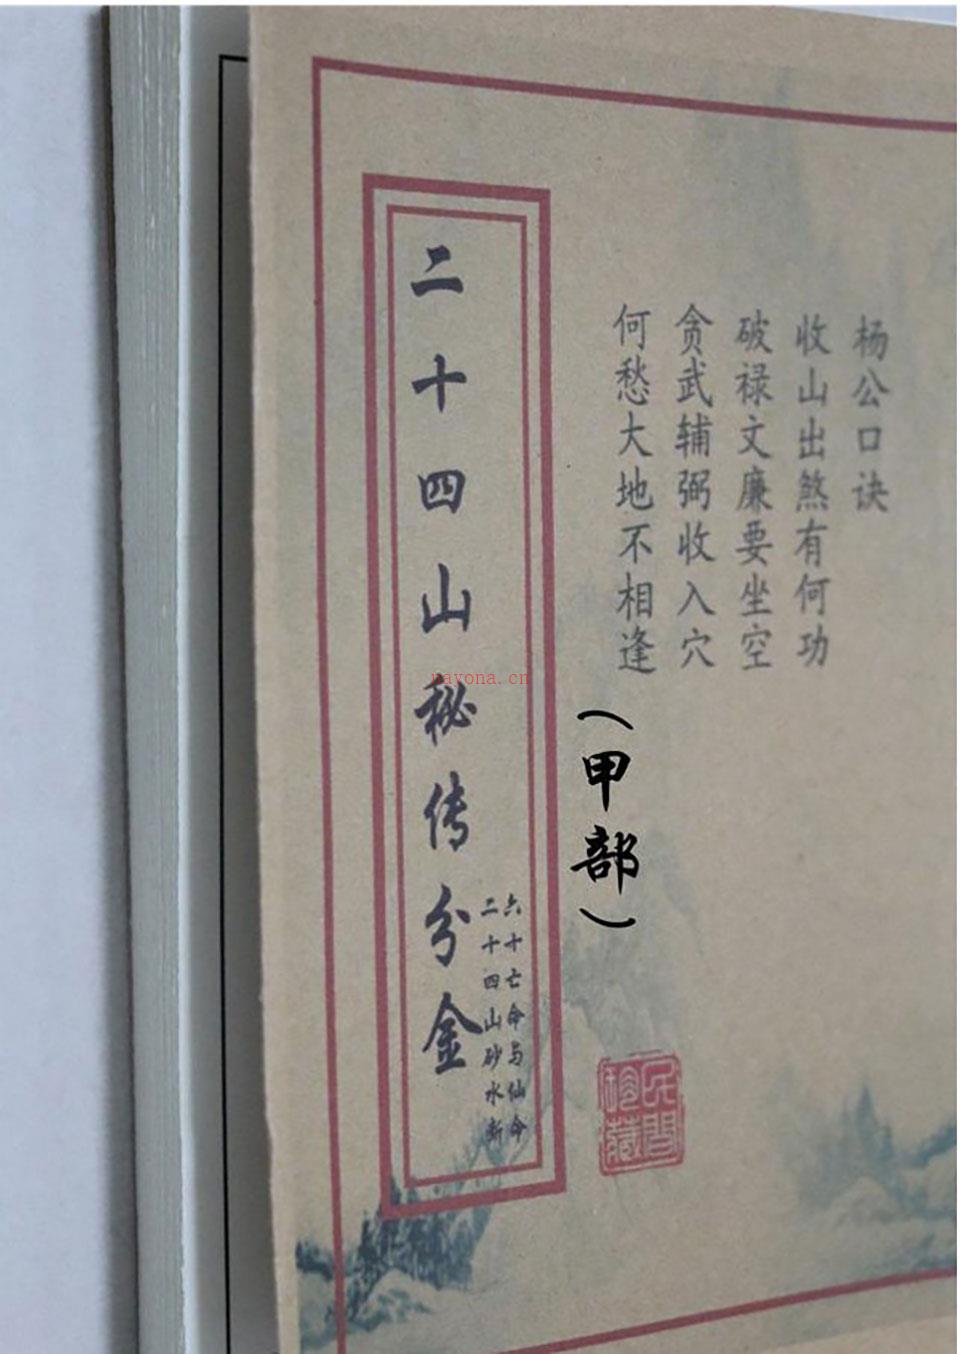 杨公口诀
收山出煞有何功
破禄文廉要坐空
贪武辅弼收入穴
何愁大地不相逢
（甲部）
二十四山秘传分金
六十亡命与仙命
二十四山砂水断
民间珍藏
nayona.cn